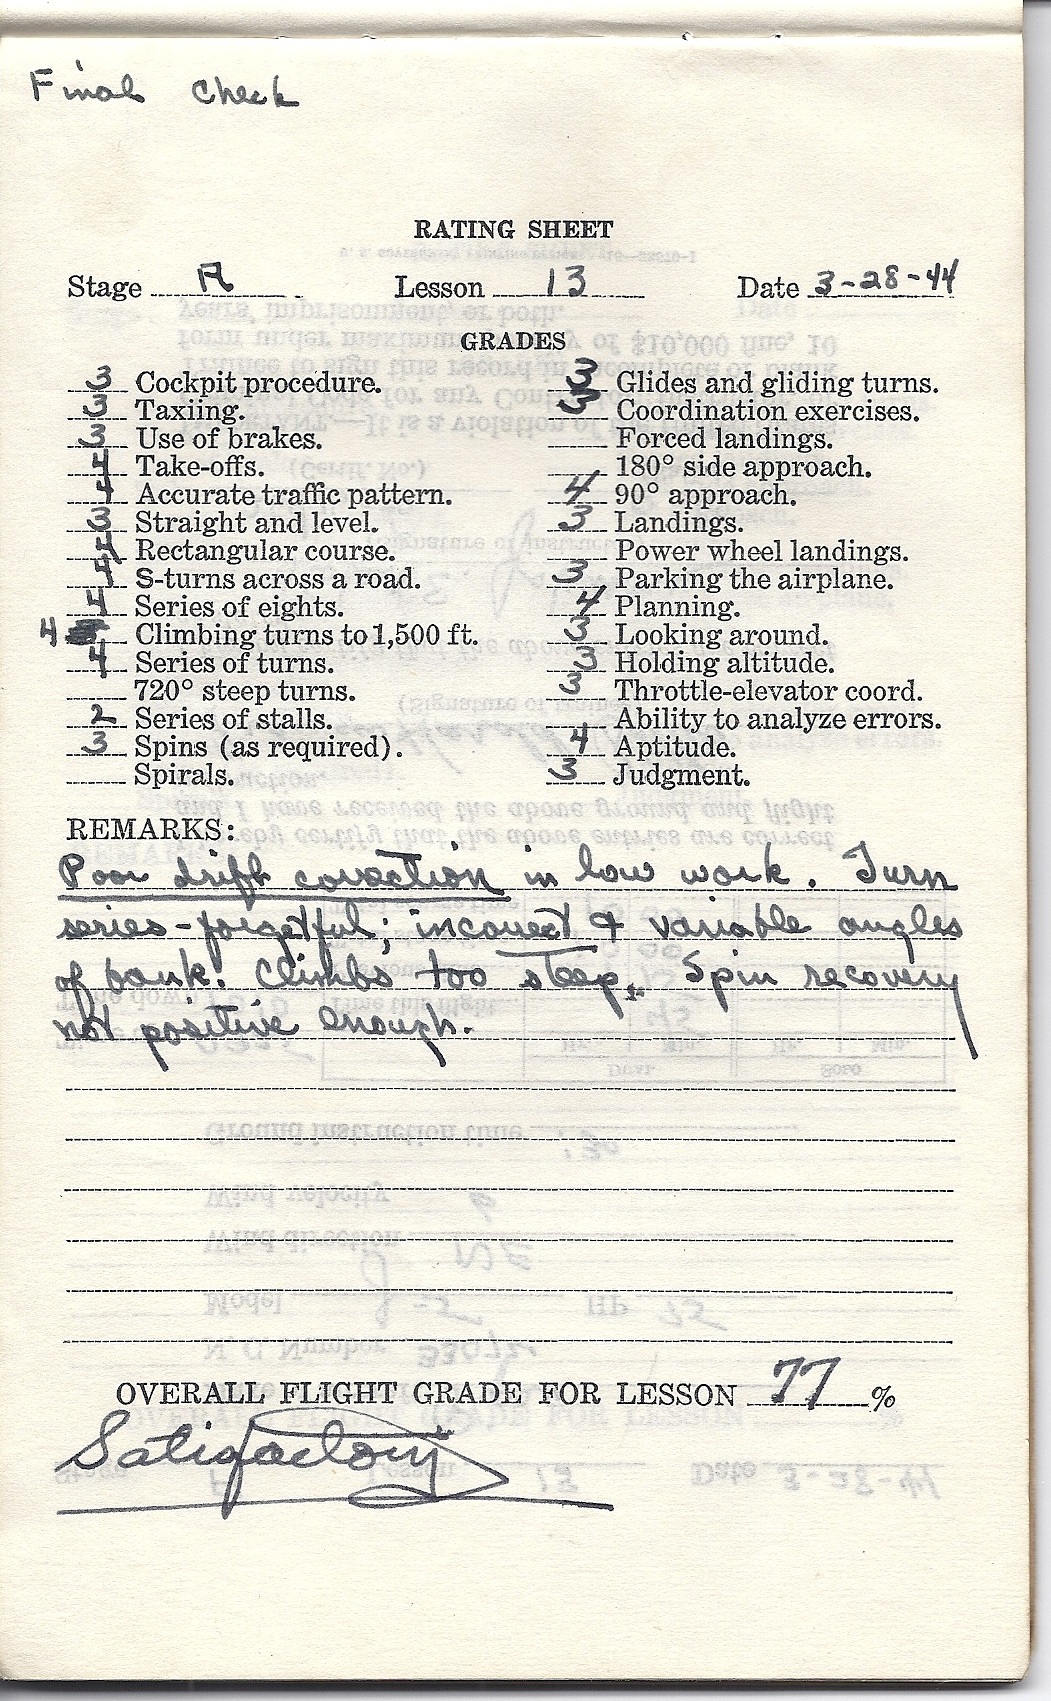 Final Check
RATING SHEET
Stage A Lesson 13 Date 3-28-44
GRADES
3 Cockpit procedure.
3 Taxiing.
3 Use of brakes.
4 Take-offs.
4 Accurate traffic pattern.
3 Straight and level.
4 Rectangular course.
4 S-turns across a road.
4 Series of eights.
4 Climbing turns to 1,500 ft.
4 Series of turns.
720° steep turns.
2 Series of stalls.
3 Spins (as required).
Spirals.
3 Glides and gliding turns.
3 Coordination exercises.
Forced landings.
180° side approach.
4 90° approach.
3 Landings.
Power wheel landings.
3 Parking the airplane.
4 Planning.
3 Looking around.
3 Holding altitude.
3 Throttle-elevator coord.
Ability to analyze errors.
4 Aptitude.
3 Judgment.
REMARKS:
Poor drift correction in low work. Turn
series-forgetful; incorrect & variable angles
of bank. Climbs too steep. Spin recovery
not positive enough.
OVERALL FLIGHT GRADE FOR LESSON 77 %
Satisfactory